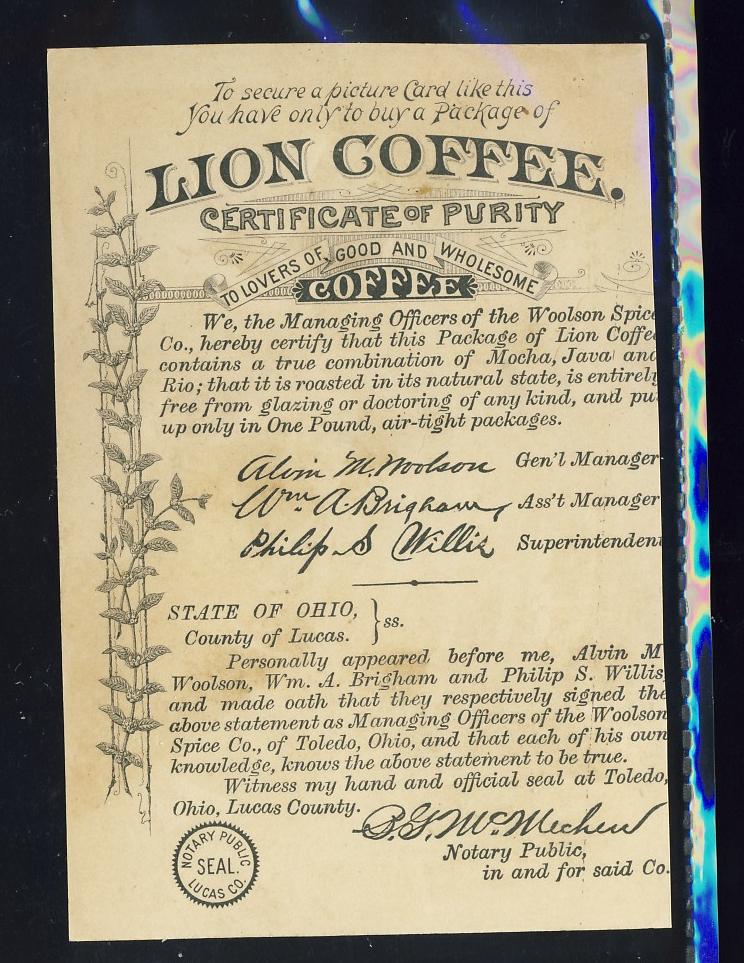 To secure a picture Card like this
You have only to buy a Package of
LION COFFEE.
CERTIFICATE OF PURITY
TO LOVERS OF GOOD AND WHOLESOME
COFFEE
We, the Managing Officers of the Woolson Spice
Co., hereby certify that this Package of Lion Coffee
contains a true combination of Mocha, Java and
Rio; that it is roasted in its natural state, is entirely
free from glazing or doctoring of any kind, and pu
up only in One Pound, air-tight packages.
Alvin M. Woolson Gen'l Manager
Wm. A. Brigham, Ass't Manager
Philip S Willis Superintendent
STATE OF OHIO,
County of Lucas. } ss.
Personally appeared before me, Alvin M
Woolson, Wm. A. Brigham and Philip S. Willis
and made oath that they respectively signed the
above statement as Managing Officers of the Woolson
Spice Co., of Toledo, Ohio, and that each of his own
knowledge, knows the above statement to be true.
Witness my hand and official seal at Toledo,
Ohio, Lucas County.
P. G. McMechen
Notary Public,
in and for said Co.
NOTARY PUBLIC
SEAL.
LUCAS CO.